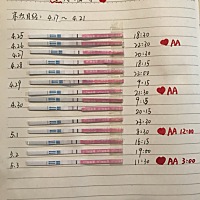 末次月经: 4.17 ~ 4.21
4.25 18:20
4.26 22:30 ♥AA
4.27 20:30
4.28 18:15
22:00
4.29 9:15
21:30 ♥AA
4.30 9:15
20:15
23:30
5.1 8:30 ♥AA 12:00
16:15
5.2 19:00
5.3 11:30 ♥AA 3:00